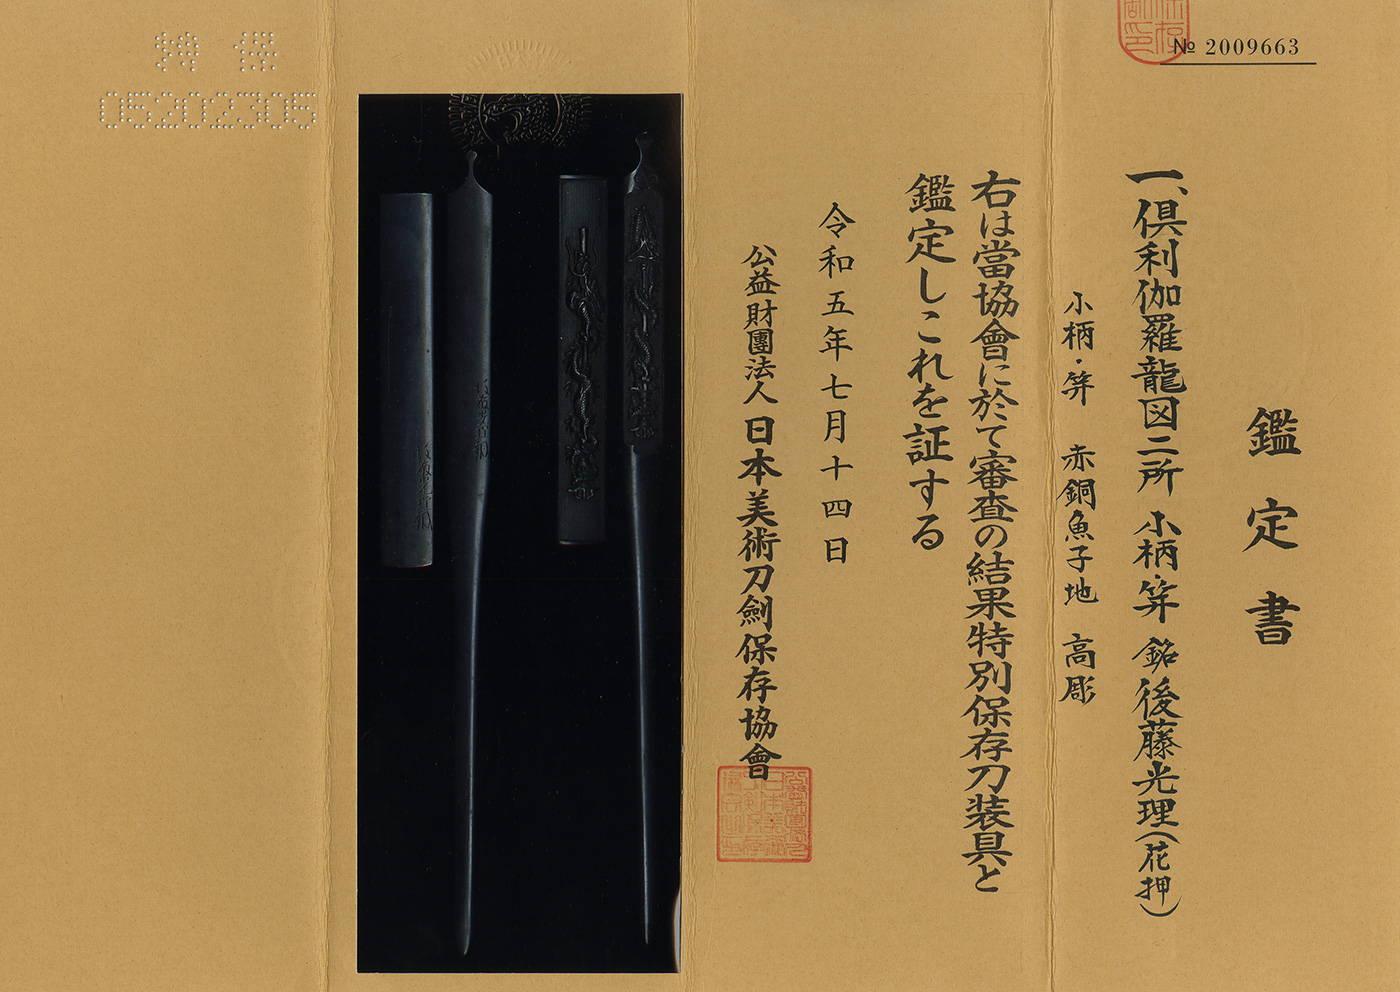 № 2009663
鑑定書
一、倶利伽羅龍図二所 小柄・笄 銘 後藤光理(花押)
小柄・笄 赤銅魚子地 高彫
右は當協會に於て審査の結果特別保存刀装具と
鑑定しこれを証する
令和五年七月十四日
公益財團法人 日本美術刀劍保存協會
特保
05202305